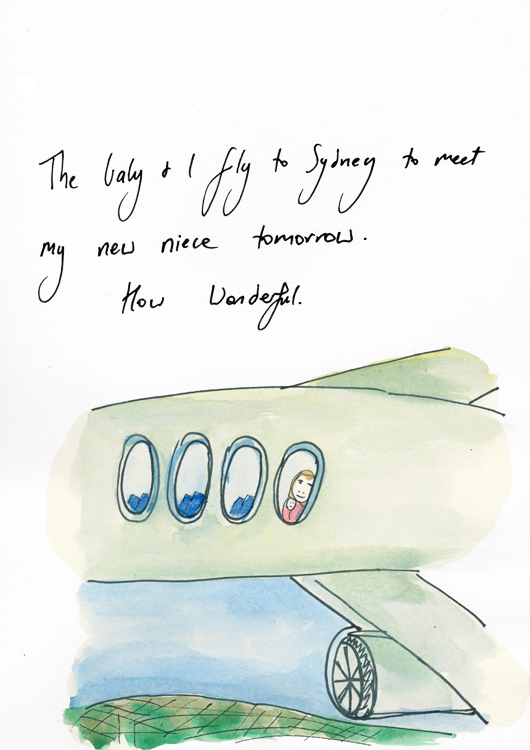 The baby & I fly to Sydney to meet
my new niece tomorrow.
How Wonderful.